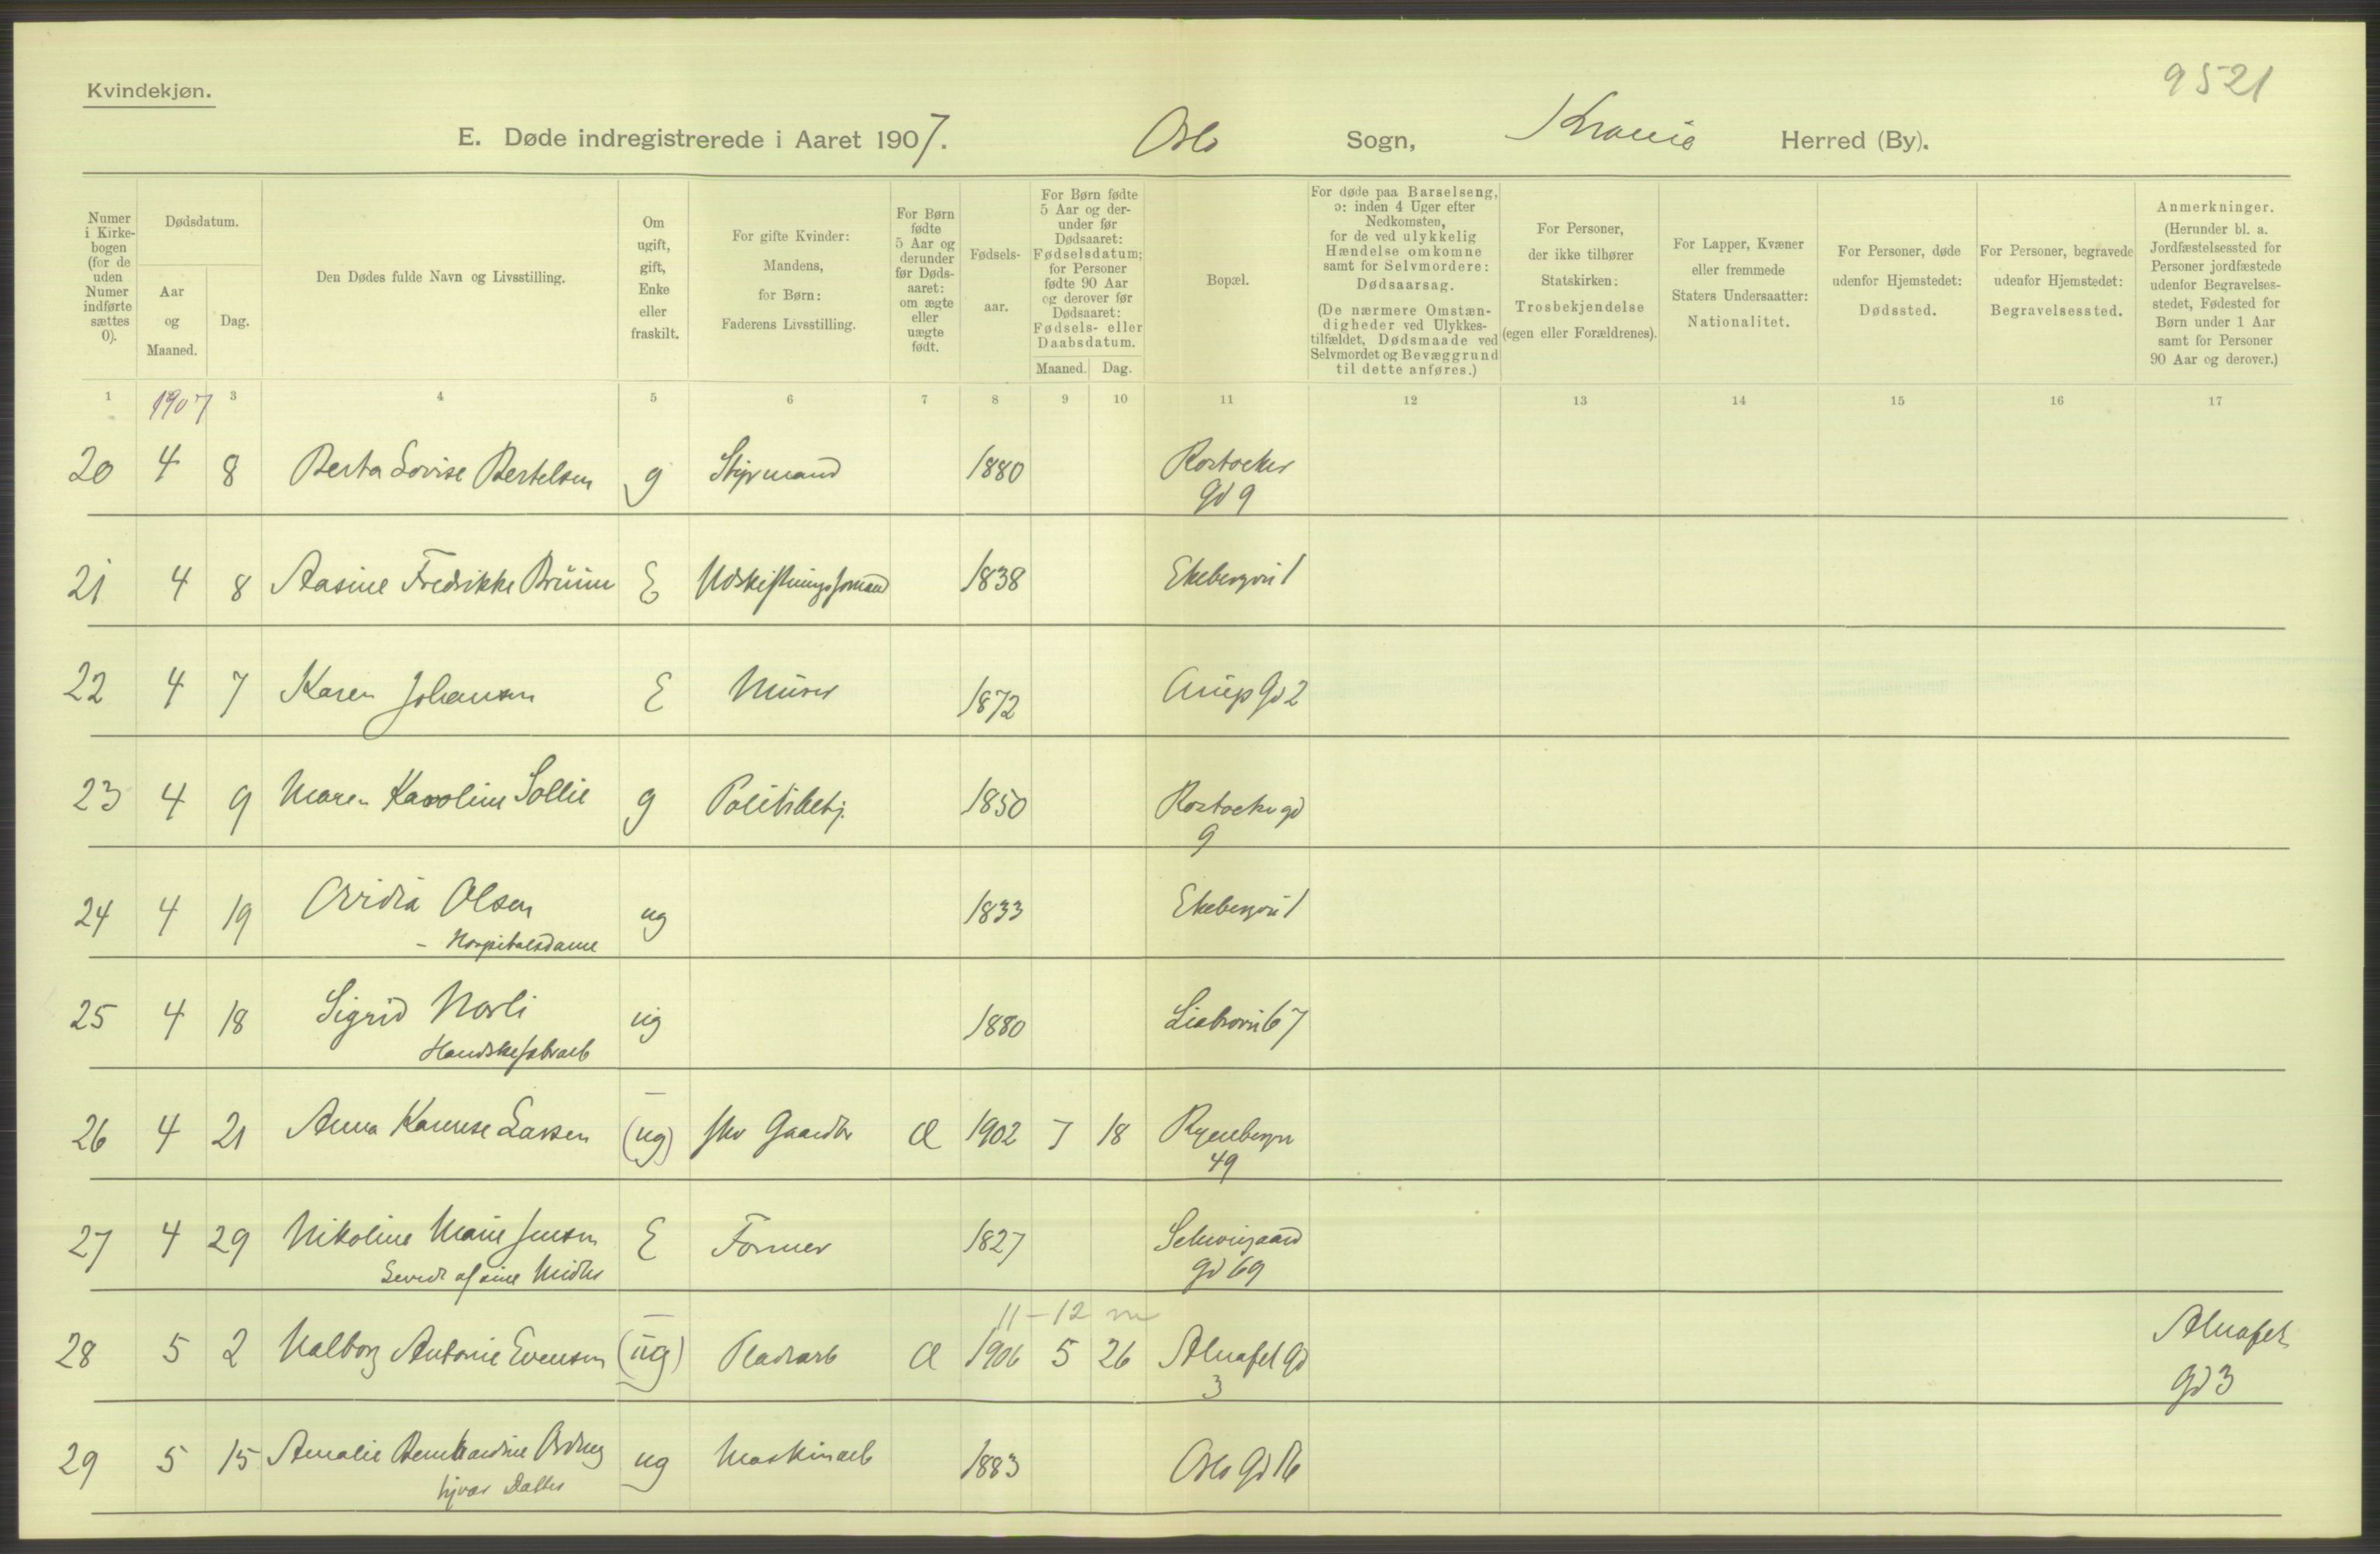 Kvindekjøn.
9521
E. Døde indregistrerede i Aaret 1907. Oslo Sogn, Krania Herred (By).
Numer i Kirke-bogen (for de uden Numer indførte sættes 0).
Dødsdatum.
Aar og Maaned.
Dag.
Den Dødes fulde Navn og Livsstilling.
Om ugift, gift, Enke eller fraskilt.
For gifte Kvinder: Mandens, for Børn: Faderens Livsstilling.
For Børn fødte 5 Aar og derunder før Døds-aaret: om ægte eller uægte født.
Fødsels-aar.
For Børn fødte 5 Aar og der-under før Dødsaaret: Fødselsdatum; for Personer fødte 90 Aar og derover før Dødsaaret: Fødsels- eller Daabsdatum.
Maaned. Dag.
Bopæl.
For døde paa Barselseng, ɔ: inden 4 Uger efter Nedkomsten, for de ved ulykkelig Hændelse omkomne samt for Selvmordere: Dødsaarsag.
(De nærmere Omstæn-digheder ved Ulykkes-tilfældet, Dødsmaade ved Selvmordet og Bevæggrund til dette anføres.)
For Personer, der ikke tilhører Statskirken: Trosbekjendelse (egen eller Forældrenes).
For Lapper, Kvæner eller fremmede Staters Undersaatter: Nationalitet.
For Personer, døde udenfor Hjemstedet: Dødssted.
For Personer, begravede udenfor Hjemstedet: Begravelsessted.
Anmerkninger.
(Herunder bl. a. Jordfæstelsessted for Personer jordfæstede udenfor Begravelses-stedet, Fødested for Børn under 1 Aar samt for Personer 90 Aar og derover.)
1 1907 3 4 5 6 7 8 9 10 11 12 13 14 15 16 17
20 4 8 Berta Lovise Bertelsen g Styrmand 1880 Rostocker
gd 9
21 4 8 Aasine Fredrikke Bruun E Udskiftningsformand 1838 Ekebergvei 1
22 4 7 Karen Johansen E Murer 1872 Arups Gd 2
23 4 9 Maren Karoline Sollie g Politibetj. 1850 Rostocker gd
9
24 4 19 Arvidia Olsen ug 1833 Ekebergvei 1
- Hospitalsdame
25 4 18 Sigrid Norli ug 1880 Liabrovei 67
Handskefabrarb
26 4 21 Anna Kamese Larsen (ug) fhv Gaardbr Æ 1902 7 18 Ryenbergvn
49
27 4 29 Nikoline Marie Jensen E Former 1827 Schweigaard
gd 69
Levede af sine Midler
11-12 m
28 5 2 Valborg Antonie Evensen (ug) Pladsarb Æ 1906 5 26 Alnafet Gd
3
Alnafet
Gd 3
29 5 15 Amalie Bernhardine ug Maskinarb 1883 Oslo Gd
hjvær Datter